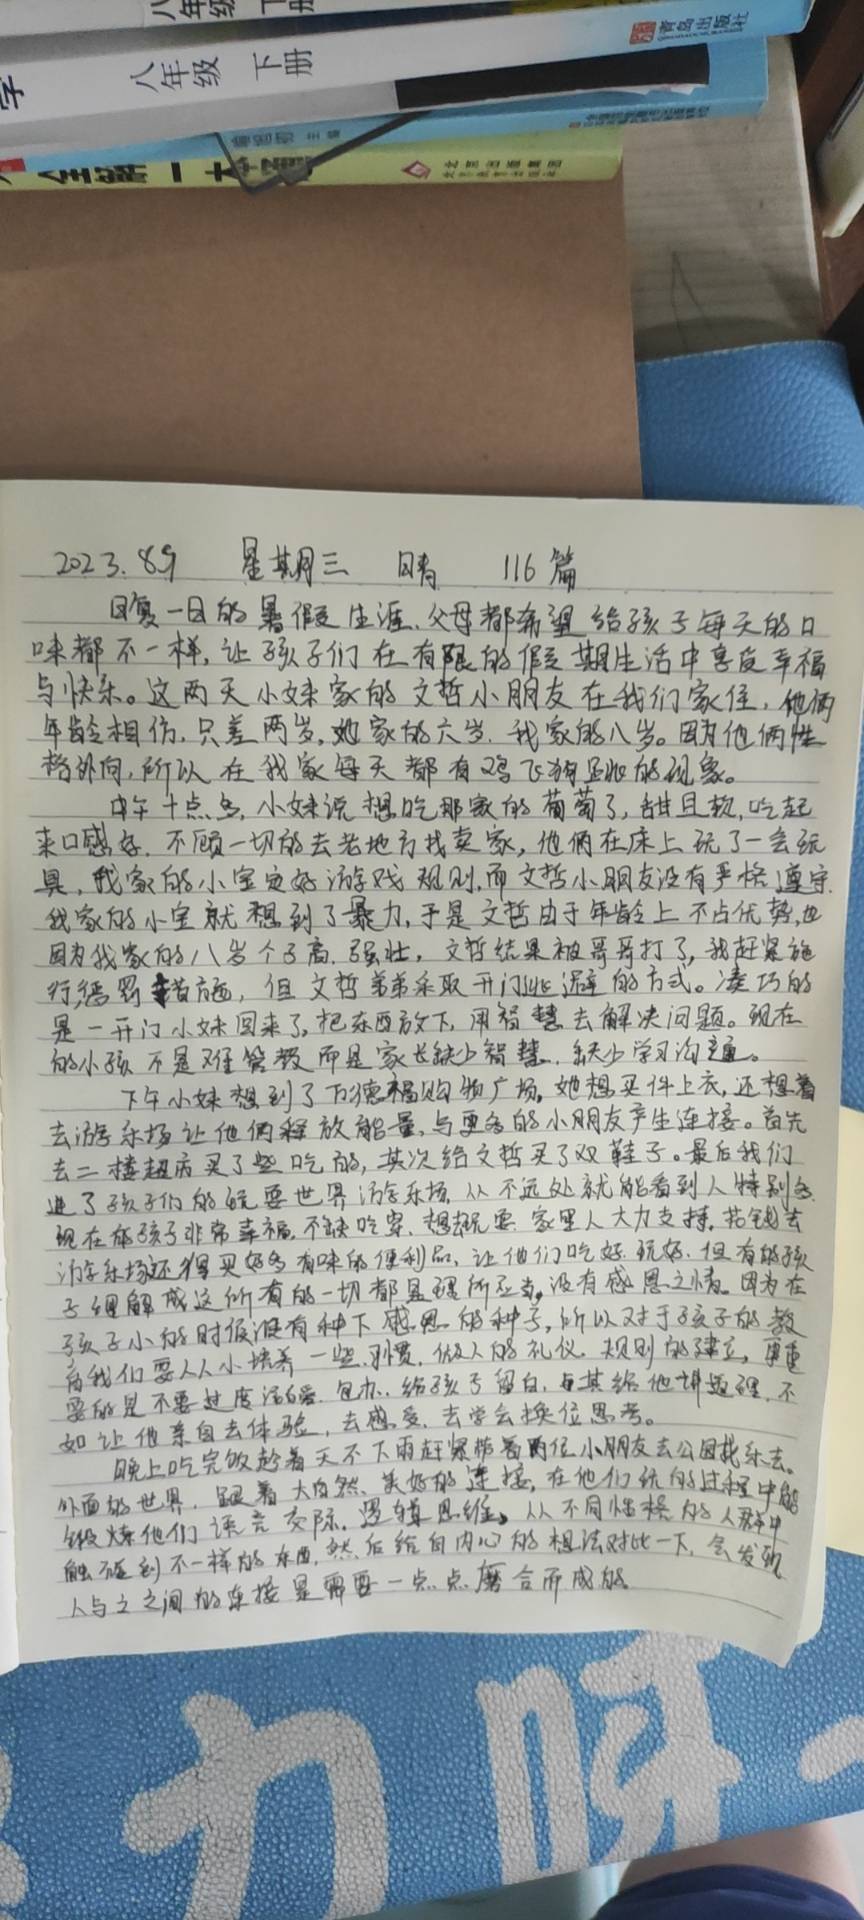 八年级 下册
八年级 下册
青岛出版社
主编
全解一本通
北京出版集团
北京教育出版社
2023.8.9 星期三 晴 116篇
回复一日的暑假生涯,父母都希望给孩子每天的口
味都不一样,让孩子们在有限的假期生活中享受幸福
与快乐。这两天小妹家的文哲小朋友在我们家住,他俩
年龄相仿,只差两岁,她家的六岁,我家的八岁。因为他俩性
格外向,所以在我家每天都有鸡飞狗跳的现象。
中午十点多,小妹说想吃那家的葡萄了,甜且软,吃起
来口感好,不顾一切的去老地方找卖家,他俩在床上玩了一会玩
具,我家的小宝定好游戏规则,而文哲小朋友没有严格遵守
我家的小宝就想到了暴力,于是文哲由于年龄上不占优势,也
因为我家的八岁个子高,强壮,文哲结果被哥哥打了,我赶紧施
行惩罚措施,但文哲弟弟采取开门逃避的方式。凑巧的
是一开门小妹回来了,把东西放下,用智慧去解决问题。现在
的小孩不是难管教而是家长缺少智慧,缺少学习沟通。
下午小妹想到了万德福购物广场,她想买件上衣,还想着
去游乐场让他俩释放能量,与更多的小朋友产生连接。首先
去二楼超市买了些吃的,其次给文哲买了双鞋子。最后我们
进了孩子们的玩耍世界游乐场,从不远处就能看到人特别多
现在的孩子非常幸福,不缺吃穿,想起玩耍,家里人大力支持,拾钱去
游乐场还得买好多有味的便利品,让他们吃好,玩好,但有的孩
子理解成这所有的一切都是理所应当,没有感恩之情。因为在
孩子小的时候没有种下感恩的种子,所以对于孩子的教
育我们要从小培养一些习惯,做人的礼仪,规则的建立,更重
要的是不要过度溺爱,包办,给孩子留白,与其给他讲道理,不
如让他亲自去体验,去感受,去学会换位思考。
晚上吃完饭趁着天不下雨赶紧带着两位小朋友去公园找乐去。
外面的世界,跟着大自然,美好的连接,在他们玩的过程中能
锻炼他们语言交际,逻辑思维,从不同性格的人群中
触碰到不一样的东西,然后给自内心的想法对比一下,会发现
人与之之间的连接是需要一点点磨合而成的
力呀